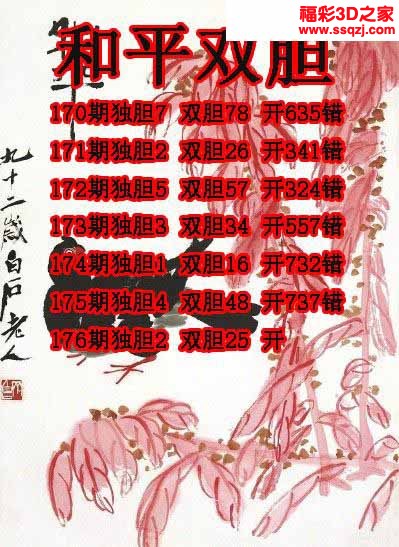 福彩3D之家
www.ssqzj.com
和平双胆
170期独胆7 双胆78 开635错
171期独胆2 双胆26 开341错
172期独胆5 双胆57 开324错
173期独胆3 双胆34 开557错
174期独胆1 双胆16 开732错
175期独胆4 双胆48 开737错
176期独胆2 双胆25 开
九十二岁白石老人